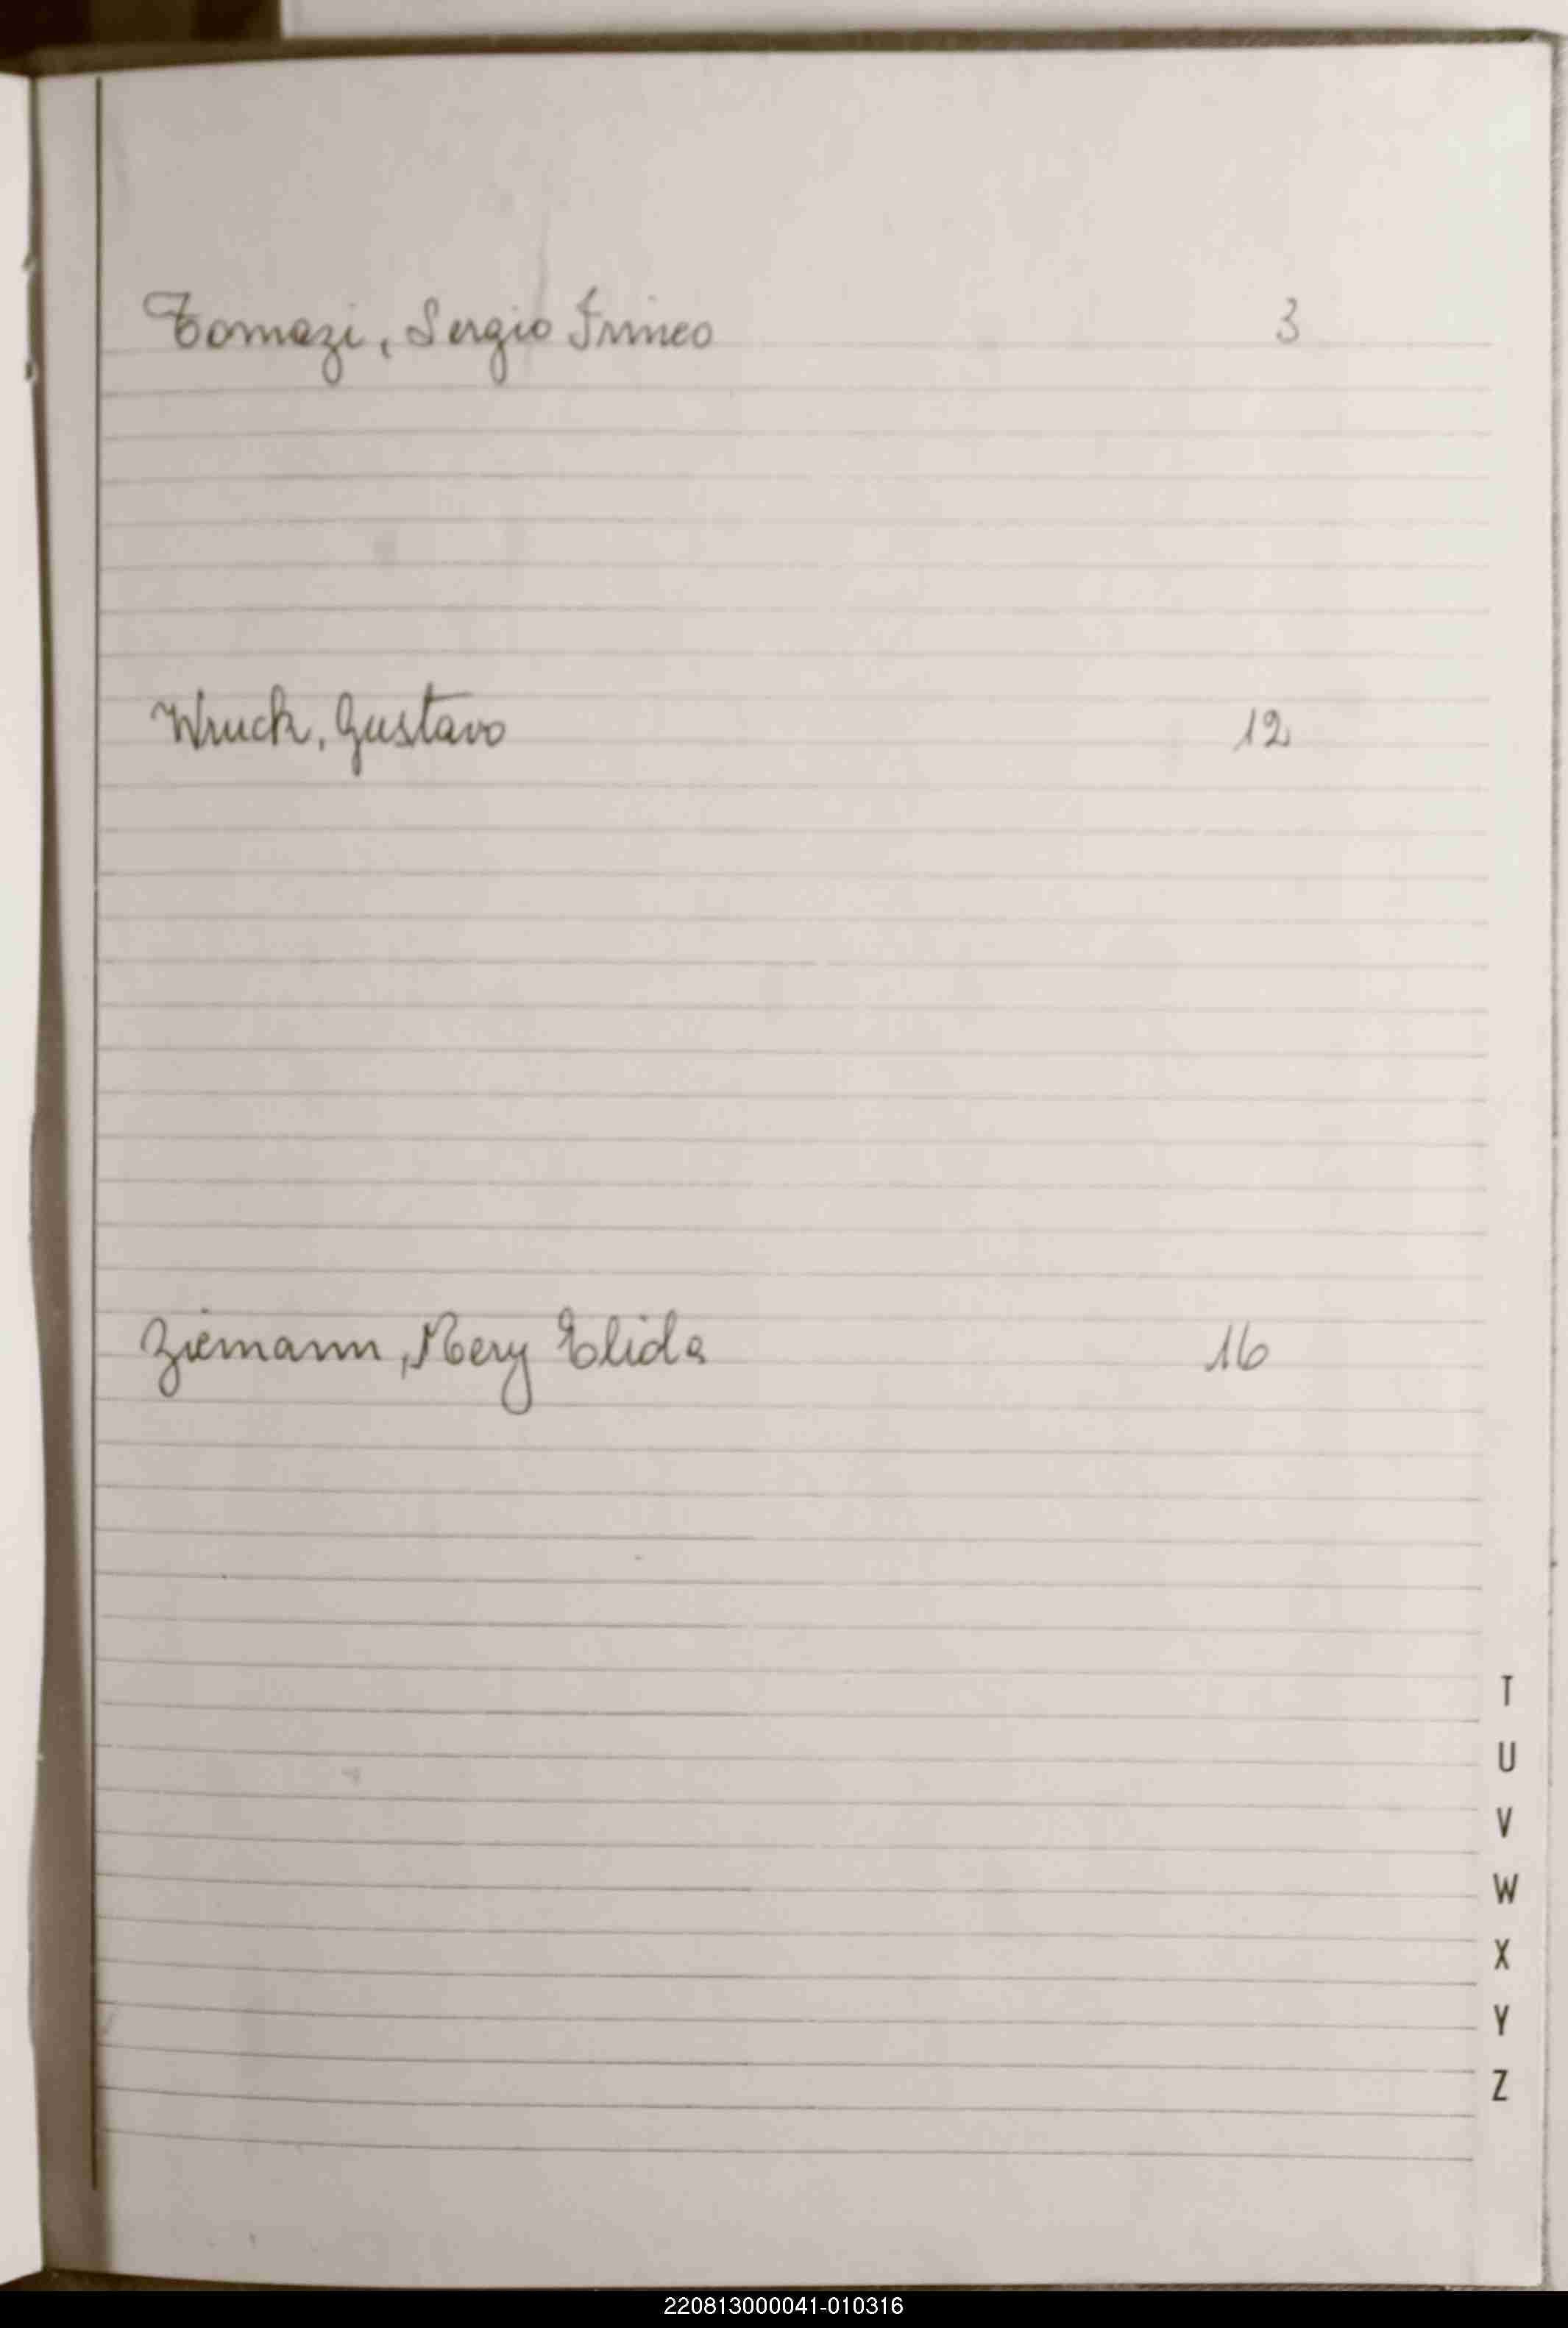 Tomazi, Sergio Irineo 3
Wruck, Gustavo 12
Ziemann, Mery Elida 16
T
U
V
W
X
Y
Z
220813000041-010316